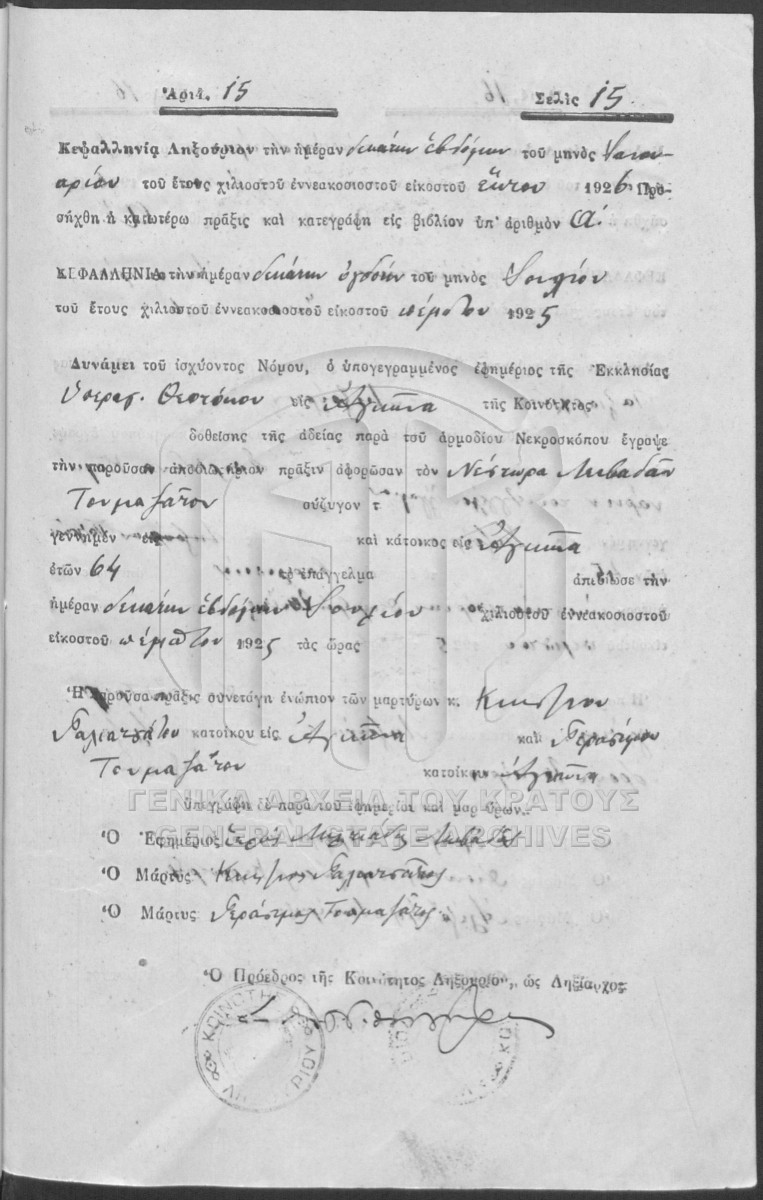 Ἀριθ. 15 Σελὶς 15
Κεφαλληνία Ληξούριον τὴν ἡμέραν δεκάτην ἑβδόμην τοῦ μηνὸς Ἰανου-
αρίου τοῦ ἔτους χιλιοστοῦ ἐννεακοσιοστοῦ εἰκοστοῦ ἕκτου 1926 Προ-
σήχθη ἡ κατωτέρω πρᾶξις καὶ κατεγράφη εἰς βιβλίον ὑπ' ἀριθμὸν Α'.
ΚΕΦΑΛΛΗΝΙΑ τὴν ἡμέραν δεκάτην ὀγδόην τοῦ μηνὸς Ἰουλίου
τοῦ ἔτους χιλιοστοῦ ἐννεακοσιοστοῦ εἰκοστοῦ πέμπτου 1925
Δυνάμει τοῦ ἰσχύοντος Νόμου, ὁ ὑπογεγραμμένος ἐφημέριος τῆς Ἐκκλησίας
Θεοτόκου εἰς τῆς Κοινότητος
δοθείσης τῆς ἀδείας παρὰ τοῦ ἁρμοδίου Νεκροσκόπου ἔγραψε
τὴν παροῦσαν ἀποβιωτήριον πρᾶξιν ἀφορῶσαν τὸν Νέστωρα Λιβαδᾶν
Τουμαζάτον σύζυγον τ
γεννημεν καὶ κάτοικος εἰς
ἐτῶν 64 τὸ ἐπάγγελμα ἀπεβίωσε τὴν
ἡμέραν δεκάτην ἑβδόμην Ἰουλίου χιλιοστοῦ ἐννεακοσιοστοῦ
εἰκοστοῦ πέμπτου 1925 τὰς ὥρας
Ἡ παροῦσα πρᾶξις συνετάγη ἐνώπιον τῶν μαρτύρων κ.
Γαλιατσάτου κατοίκου εἰς καὶ Γερασίμου
Τουμαζάτου κατοίκου
ΓΕΝΙΚΑ ΑΡΧΕΙΑ ΤΟΥ ΚΡΑΤΟΥΣ
ὑπεγράφη δὲ παρὰ τοῦ ἐφημερίου καὶ μαρτύρων.
GENERAL STATE ARCHIVES
Ὁ Ἐφημέριος Λιβαδᾶς
Ὁ Μάρτυς Γαλιατσάτος
Ὁ Μάρτυς Γεράσιμος Τουμαζάτος
Ὁ Πρόεδρος τῆς Κοινότητος Ληξουρίου, ὡς Ληξίαρχος
ΚΟΙΝΟΤΗΣ ΛΗΞΟΥΡΙΟΥ